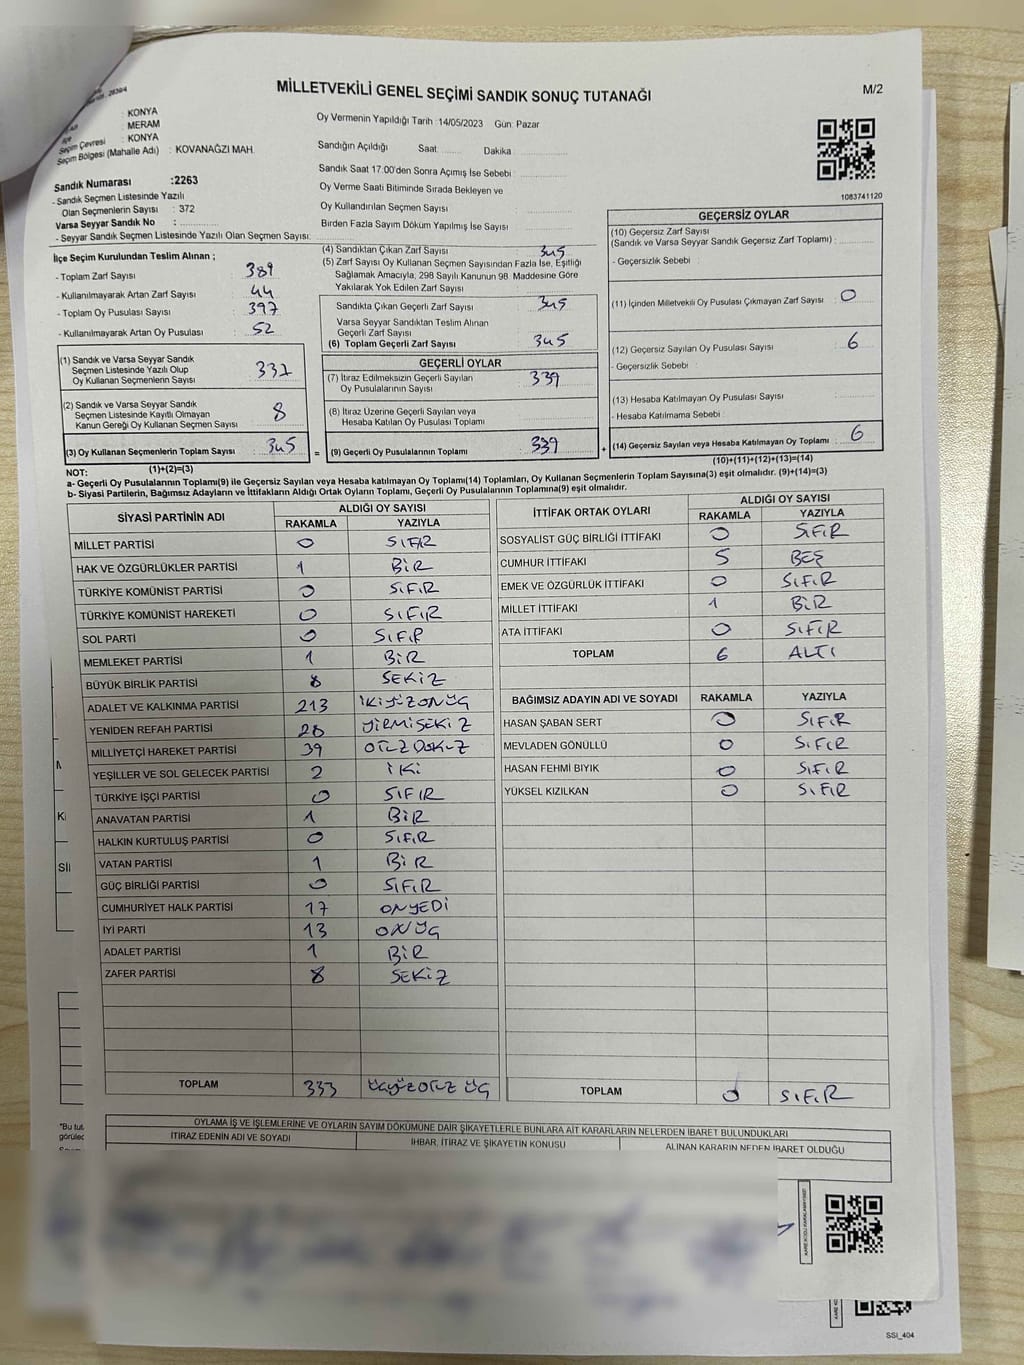 MİLLETVEKİLİ GENEL SEÇİMİ SANDIK SONUÇ TUTANAĞI
M/2
: KONYA
: MERAM
Seçim Çevresi : KONYA
Seçim Bölgesi (Mahalle Adı) : KOVANAĞZI MAH.
Oy Vermenin Yapıldığı Tarih :14/05/2023 Gün: Pazar
Sandığın Açıldığı Saat ........ Dakika
Sandık Saat 17:00'den Sonra Açımış İse Sebebi :
Oy Verme Saati Bitiminde Sırada Bekleyen ve
Oy Kullandırılan Seçmen Sayısı
Birden Fazla Sayım Döküm Yapılmış İse Sayısı
1083741120
Sandık Numarası :2263
- Sandık Seçmen Listesinde Yazılı
Olan Seçmenlerin Sayısı : 372
Varsa Seyyar Sandık No :
- Seyyar Sandık Seçmen Listesinde Yazılı Olan Seçmen Sayısı:
İlçe Seçim Kurulundan Teslim Alınan ;
- Toplam Zarf Sayısı : 389
- Kullanılmayarak Artan Zarf Sayısı : 44
- Toplam Oy Pusulası Sayısı : 397
- Kullanılmayarak Artan Oy Pusulası : 52
(1) Sandık ve Varsa Seyyar Sandık
Seçmen Listesinde Yazılı Olup
Oy Kullanan Seçmenlerin Sayısı : 337
(2) Sandık ve Varsa Seyyar Sandık
Seçmen Listesinde Kayıtlı Olmayan
Kanun Gereği Oy Kullanan Seçmen Sayısı : 8
(3) Oy Kullanan Seçmenlerin Toplam Sayısı : 345
(1)+(2)=(3)
(4) Sandıktan Çıkan Zarf Sayısı 345
(5) Zarf Sayısı Oy Kullanan Seçmen Sayısından Fazla İse, Eşitliği
Sağlamak Amacıyla; 298 Sayılı Kanunun 98. Maddesine Göre
Yakılarak Yok Edilen Zarf Sayısı :
Sandıkta Çıkan Geçerli Zarf Sayısı : 345
Varsa Seyyar Sandıktan Teslim Alınan
Geçerli Zarf Sayısı
(6) Toplam Geçerli Zarf Sayısı : 345
GEÇERLİ OYLAR
(7) İtiraz Edilmeksizin Geçerli Sayılan
Oy Pusulalarının Sayısı : 339
(8) İtiraz Üzerine Geçerli Sayılan veya
Hesaba Katılan Oy Pusulası Toplamı :
= (9) Geçerli Oy Pusulalarının Toplamı : 339 +
GEÇERSİZ OYLAR
(10) Geçersiz Zarf Sayısı
(Sandık ve Varsa Seyyar Sandık Geçersiz Zarf Toplamı) :
- Geçersizlik Sebebi :
(11) İçinden Milletvekili Oy Pusulası Çıkmayan Zarf Sayısı : 0
(12) Geçersiz Sayılan Oy Pusulası Sayısı : 6
- Geçersizlik Sebebi :
(13) Hesaba Katılmayan Oy Pusulası Sayısı :
- Hesaba Katılmama Sebebi :
(14) Geçersiz Sayılan veya Hesaba Katılmayan Oy Toplamı : 6
(10)+(11)+(12)+(13)=(14)
NOT:
a- Geçerli Oy Pusulalarının Toplamı(9) ile Geçersiz Sayılan veya Hesaba katılmayan Oy Toplamı(14) Toplamları, Oy Kullanan Seçmenlerin Toplam Sayısına(3) eşit olmalıdır. (9)+(14)=(3)
b- Siyasi Partilerin, Bağımsız Adayların ve İttifakların Aldığı Ortak Oyların Toplamı, Geçerli Oy Pusulalarının Toplamına(9) eşit olmalıdır.
SİYASİ PARTİNİN ADI ALDIĞI OY SAYISI
RAKAMLA YAZIYLA
MİLLET PARTİSİ 0 SIFIR
HAK VE ÖZGÜRLÜKLER PARTİSİ 1 BİR
TÜRKİYE KOMÜNİST PARTİSİ 0 SIFIR
TÜRKİYE KOMÜNİST HAREKETİ 0 SIFIR
SOL PARTİ 0 SIFIR
MEMLEKET PARTİSİ 1 BİR
BÜYÜK BİRLİK PARTİSİ 8 SEKİZ
ADALET VE KALKINMA PARTİSİ 213 İKİYÜZONÜÇ
YENİDEN REFAH PARTİSİ 28 YİRMİSEKİZ
MİLLİYETÇİ HAREKET PARTİSİ 39 OTUZDOKUZ
YEŞİLLER VE SOL GELECEK PARTİSİ 2 İKİ
TÜRKİYE İŞÇİ PARTİSİ 0 SIFIR
ANAVATAN PARTİSİ 1 BİR
HALKIN KURTULUŞ PARTİSİ 0 SIFIR
VATAN PARTİSİ 1 BİR
GÜÇ BİRLİĞİ PARTİSİ 0 SIFIR
CUMHURİYET HALK PARTİSİ 17 ONYEDİ
İYİ PARTİ 13 ONÜÇ
ADALET PARTİSİ 1 BİR
ZAFER PARTİSİ 8 SEKİZ
TOPLAM 333 ÜÇYÜZOTUZ ÜÇ
İTTİFAK ORTAK OYLARI ALDIĞI OY SAYISI
RAKAMLA YAZIYLA
SOSYALİST GÜÇ BİRLİĞİ İTTİFAKI 0 SIFIR
CUMHUR İTTİFAKI 5 BEŞ
EMEK VE ÖZGÜRLÜK İTTİFAKI 0 SIFIR
MİLLET İTTİFAKI 1 BİR
ATA İTTİFAKI 0 SIFIR
TOPLAM 6 ALTI
BAĞIMSIZ ADAYIN ADI VE SOYADI RAKAMLA YAZIYLA
HASAN ŞABAN SERT 0 SIFIR
MEVLADEN GÖNÜLLÜ 0 SIFIR
HASAN FEHMİ BIYIK 0 SIFIR
YÜKSEL KIZILKAN 0 SIFIR
TOPLAM 0 SIFIR
OYLAMA İŞ VE İŞLEMLERİNE VE OYLARIN SAYIM DÖKÜMÜNE DAİR ŞİKAYETLERLE BUNLARA AİT KARARLARIN NELERDEN İBARET BULUNDUKLARI
İTİRAZ EDENİN ADI VE SOYADI İHBAR, İTİRAZ VE ŞİKAYETİN KONUSU ALINAN KARARIN NEDEN İBARET OLDUĞU
"Bu tut
görülec
SSI_404